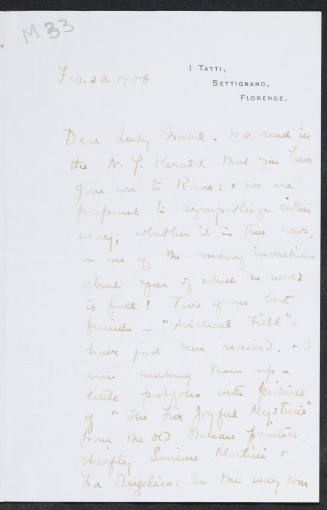 M 33
I TATTI,
SETTIGNANO,
FLORENCE.
Feb. 23. 1908
Dear Lady Isabel - We read in
the N. Y. Herald that you have
gone over to Rome: & we are
prepared to sympathize either
way, whether it is true news,
or one of the many inventions
about you of which the world
is full! Two of our best
friends - "Michael Field" -
have just been received. & I
am making them up a
little portfolio with pictures
of "The Five Joyful Mysteries"
from the old Italian painters,
chiefly Simone Martini &
Fra Angelico. So this way con